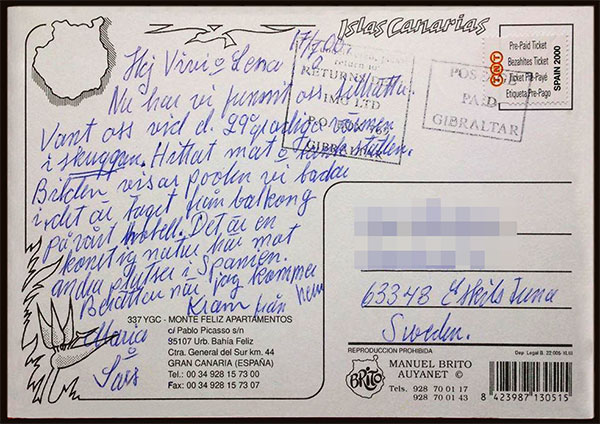 Islas Canarias
17/7 00
Hej Vivi o Lena
Nu har vi funnit oss tillrätta.
Vant oss vid d. 29 gradiga värmen
i skuggan. Hittat mat o ställen.
Bilden visar poolen vi badar
i, det är taget från balkong
på vårt hotell. Det är en
konstig natur här mot
andra platser i Spanien.
Berättar när jag kommer
hem
Kram från
Maria
o
Lars
return to
RETURNS TO
IMC LTD
PO BOX
GIBRALTAR
POSTAGE
PAID
GIBRALTAR
TNT
Pre-Paid Ticket
Bezahltes Ticket
Ticket Pré-Payé
Etiqueta Pre-Pago
SPAIN 2000
63348 Eskilstuna
Sweden.
337 YGC - MONTE FELIZ APARTAMENTOS
c/ Pablo Picasso s/n
95107 Urb. Bahía Feliz
Ctra. General del Sur km. 44
GRAN CANARIA (ESPAÑA)
Tel.: 00 34 928 15 73 00
Fax: 00 34 928 15 73 07
REPRODUCCIÓN PROHIBIDA
Dep. Legal B. 22.005-XLIII
BRITO
MANUEL BRITO
AUYANET ©
Tels. 928 70 01 17
928 70 01 43
8 423987 130515